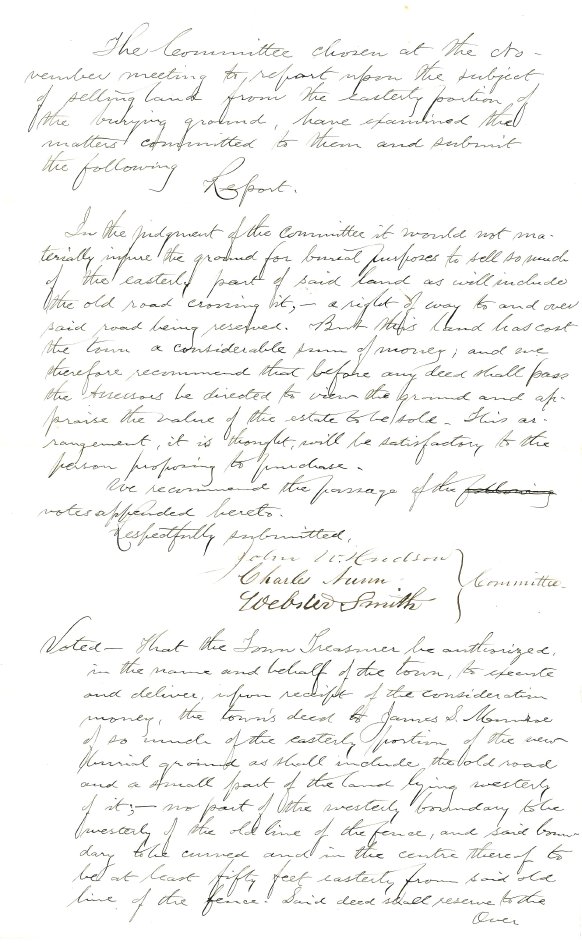 The Committee chosen at the No-
vember meeting to report upon the subject
of selling land from the easterly portion of
the burying ground, have examined the
matters committed to them and submit
the following
Report.
In the judgment of the committee it would not ma-
terially injure the ground for burial purposes to sell so much
of the easterly part of said land as will include
the old road crossing it, - a right of way to and over
said road being reserved. But this land has cost
the town a considerable sum of money; and we
therefore recommend that before any deed shall pass
the Assessors be directed to view the ground and ap-
praise the value of the estate to be sold. This ar-
rangement, it is thought, will be satisfactory to the
person proposing to purchase.
We recommend the passage of the following
votes appended hereto.
Respectfully submitted,
John W. Hudson
Charles Nunn
Webster Smith
Committee.
Voted - That the Town Treasurer be authorized,
in the name and behalf of the town, to execute
and deliver, upon receipt of the consideration
money, the town's deed to James S. Munroe
of so much of the easterly portion of the new
burial ground as shall include the old road
and a small part of the land lying westerly
of it; - no part of the westerly boundary to be
westerly of the old line of the fence, and said boun-
dary to be curved and in the centre thereof to
be at least fifty feet easterly from said old
line of the fence. Said deed shall reserve to the
Over